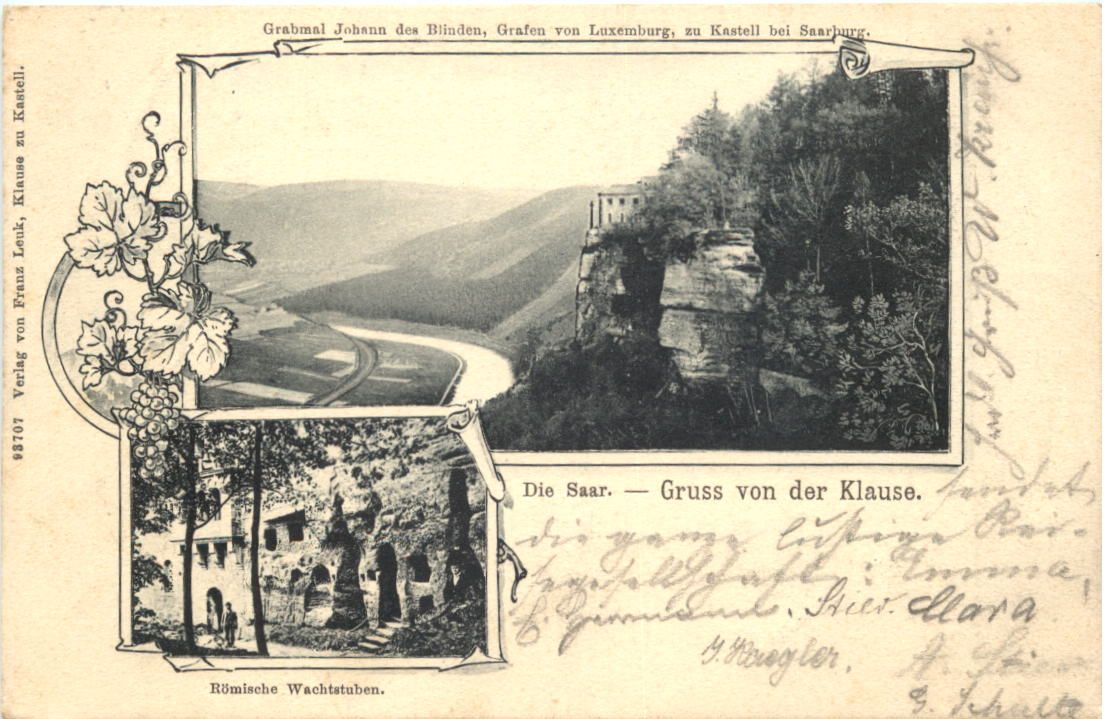 Grabmal Johann des Blinden, Grafen von Luxemburg, zu Kastell bei Saarburg.
93707 Verlag von Franz Leuk, Klause zu Kastell.
Die Saar. — Gruss von der Klause.
Römische Wachtstuben.
Gruß W.
sendet
die ganze lustige Rei-
segesellschaft: Emma,
Hermann. Stier. Clara
J. Kaegler.
A. Stier
G. Schulte